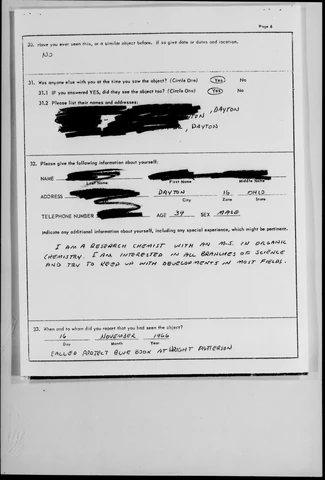 Page 6
30. Have you ever seen this, or a similar object before. If so give date or dates and location.
NO
31. Was anyone else with you at the time you saw the object? (Circle One) Yes No
31.1 IF you answered YES, did they see the object too? (Circle One) Yes No
31.2 Please list their names and addresses:
, DAYTON
, DAYTON
32. Please give the following information about yourself:
NAME
Last Name First Name Middle Name
ADDRESS DAYTON 16 OHIO
City Zone State
TELEPHONE NUMBER AGE 39 SEX MALE
Indicate any additional information about yourself, including any special experience, which might be pertinent.
I AM A RESEARCH CHEMIST WITH AN M.S. IN ORGANIC
CHEMISTRY. I AM INTERESTED IN ALL BRANCHES OF SCIENCE
AND TRY TO KEEP UP WITH DEVELOPMENTS IN MOST FIELDS.
33. When and to whom did you report that you had seen the object?
16 NOVEMBER 1966
Day Month Year
CALLED PROJECT BLUE BOOK AT WRIGHT PATTERSON